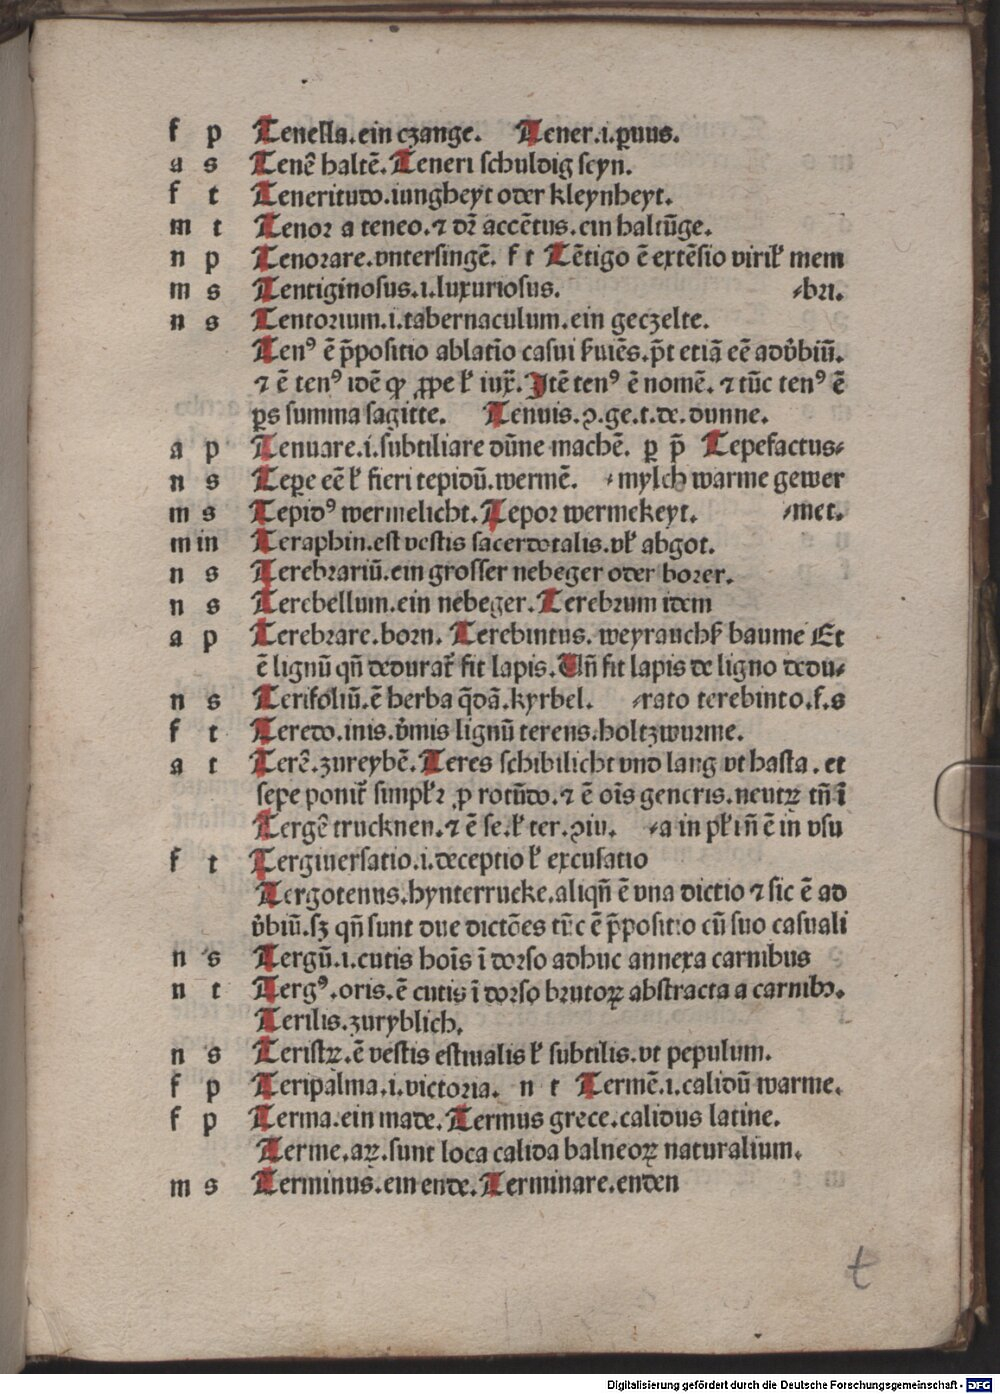 f p Tenella.ein czange. Tener.i.ꝑuus.
a s Tenē haltē. Teneri schuldig seyn.
f t Teneritudo.iungheyt oder kleynheyt.
m t Tenoꝛ a teneo.⁊ dꝛ̄ accētus.ein haltūge.
n p Tenoꝛare.vntersingē. f t Tētigo ē extēsio virilꝭ mem
m s Tentiginosus.i.luxuriosus. ⸗bꝛi.
n s Tentoꝛium.i.tabernaculum.ein geczelte.
Tenꝰ ē p̄positio ablatīo casui ẜuiēs.p̄t etiā eē adv̄biū.
⁊ ē tenꝰ idē qꝫ ꝓpe ł iux̄. Itē tenꝰ ē nomē.⁊ tūc tenꝰ ē
ꝑs summa sagitte. Tenuis.ꝛ.ge.t.de.dunne.
a p Tenuare.i.subtiliare dūne machē. ꝑ p̄ Tepefactus⸗
n s Tepere eē ł fieri tepidū.wermē. ⸗mylch warme gewer
m s Tepidꝰ wermelicht. Tepoꝛ wermekeyt. ⸗met.
m in Teraphin.est vestis sacerdotalis.vł abgot.
n s Terebꝛariū.ein grosser nebeger oder boꝛer.
n s Terebellum.ein nebeger. Terebꝛum idem
a p Terebꝛare.boꝛn. Terebintus. weyrauchẜ baume Et
ē lignū qn̄ deduraꝉ fit lapis. Vn̄ fit lapis de ligno dedu⸗
n s Terifoliū.ē herba q̄dā.kyrbel. ⸗rato terebinto.f.s
f t Teredo.inis.v̄mis lignū terens.holtzwurme.
a t Terē.zureybē. Teres schibilicht vnd lang vt hasta.et
sepe poniꝉ simplꝛ ꝓ rotūdo.⁊ ē oīs generis.neutꝝ tn̄ ī
Tergē trucknen.⁊ ē se.ł ter.ꝯiu. ⸗a in pł in̄ ē in vsu
f t Tergiuersatio.i.deceptio ł excusatio
Tergotenus.hynterrucke.aliqn̄ ē vna dictio ⁊ sic ē ad
v̄biū.sꝫ qn̄ sunt due dictōes tūc ē p̄positio cū suo casuali
n s Tergū.i.cutis hoīs ī doꝛso adhuc annexa carnibus
n t Tergꝰ.oris.ē cutis ī doꝛso brutoꝝ abstracta a carnibꝫ.
Terilis.zuryblich.
n s Teristꝝ.ē vestis estiualis ł subtilis.vt pepulum.
f p Teripalma.i.victoꝛia. n t Termē.i.calidū warme.
f p Terma.ein made. Termus grece.calidus latine.
Terme.aꝝ.sunt loca calida balneoꝝ naturalium.
m s Terminus.ein ende. Terminare.enden
t
Digitalisierung gefördert durch die Deutsche Forschungsgemeinschaft - DFG